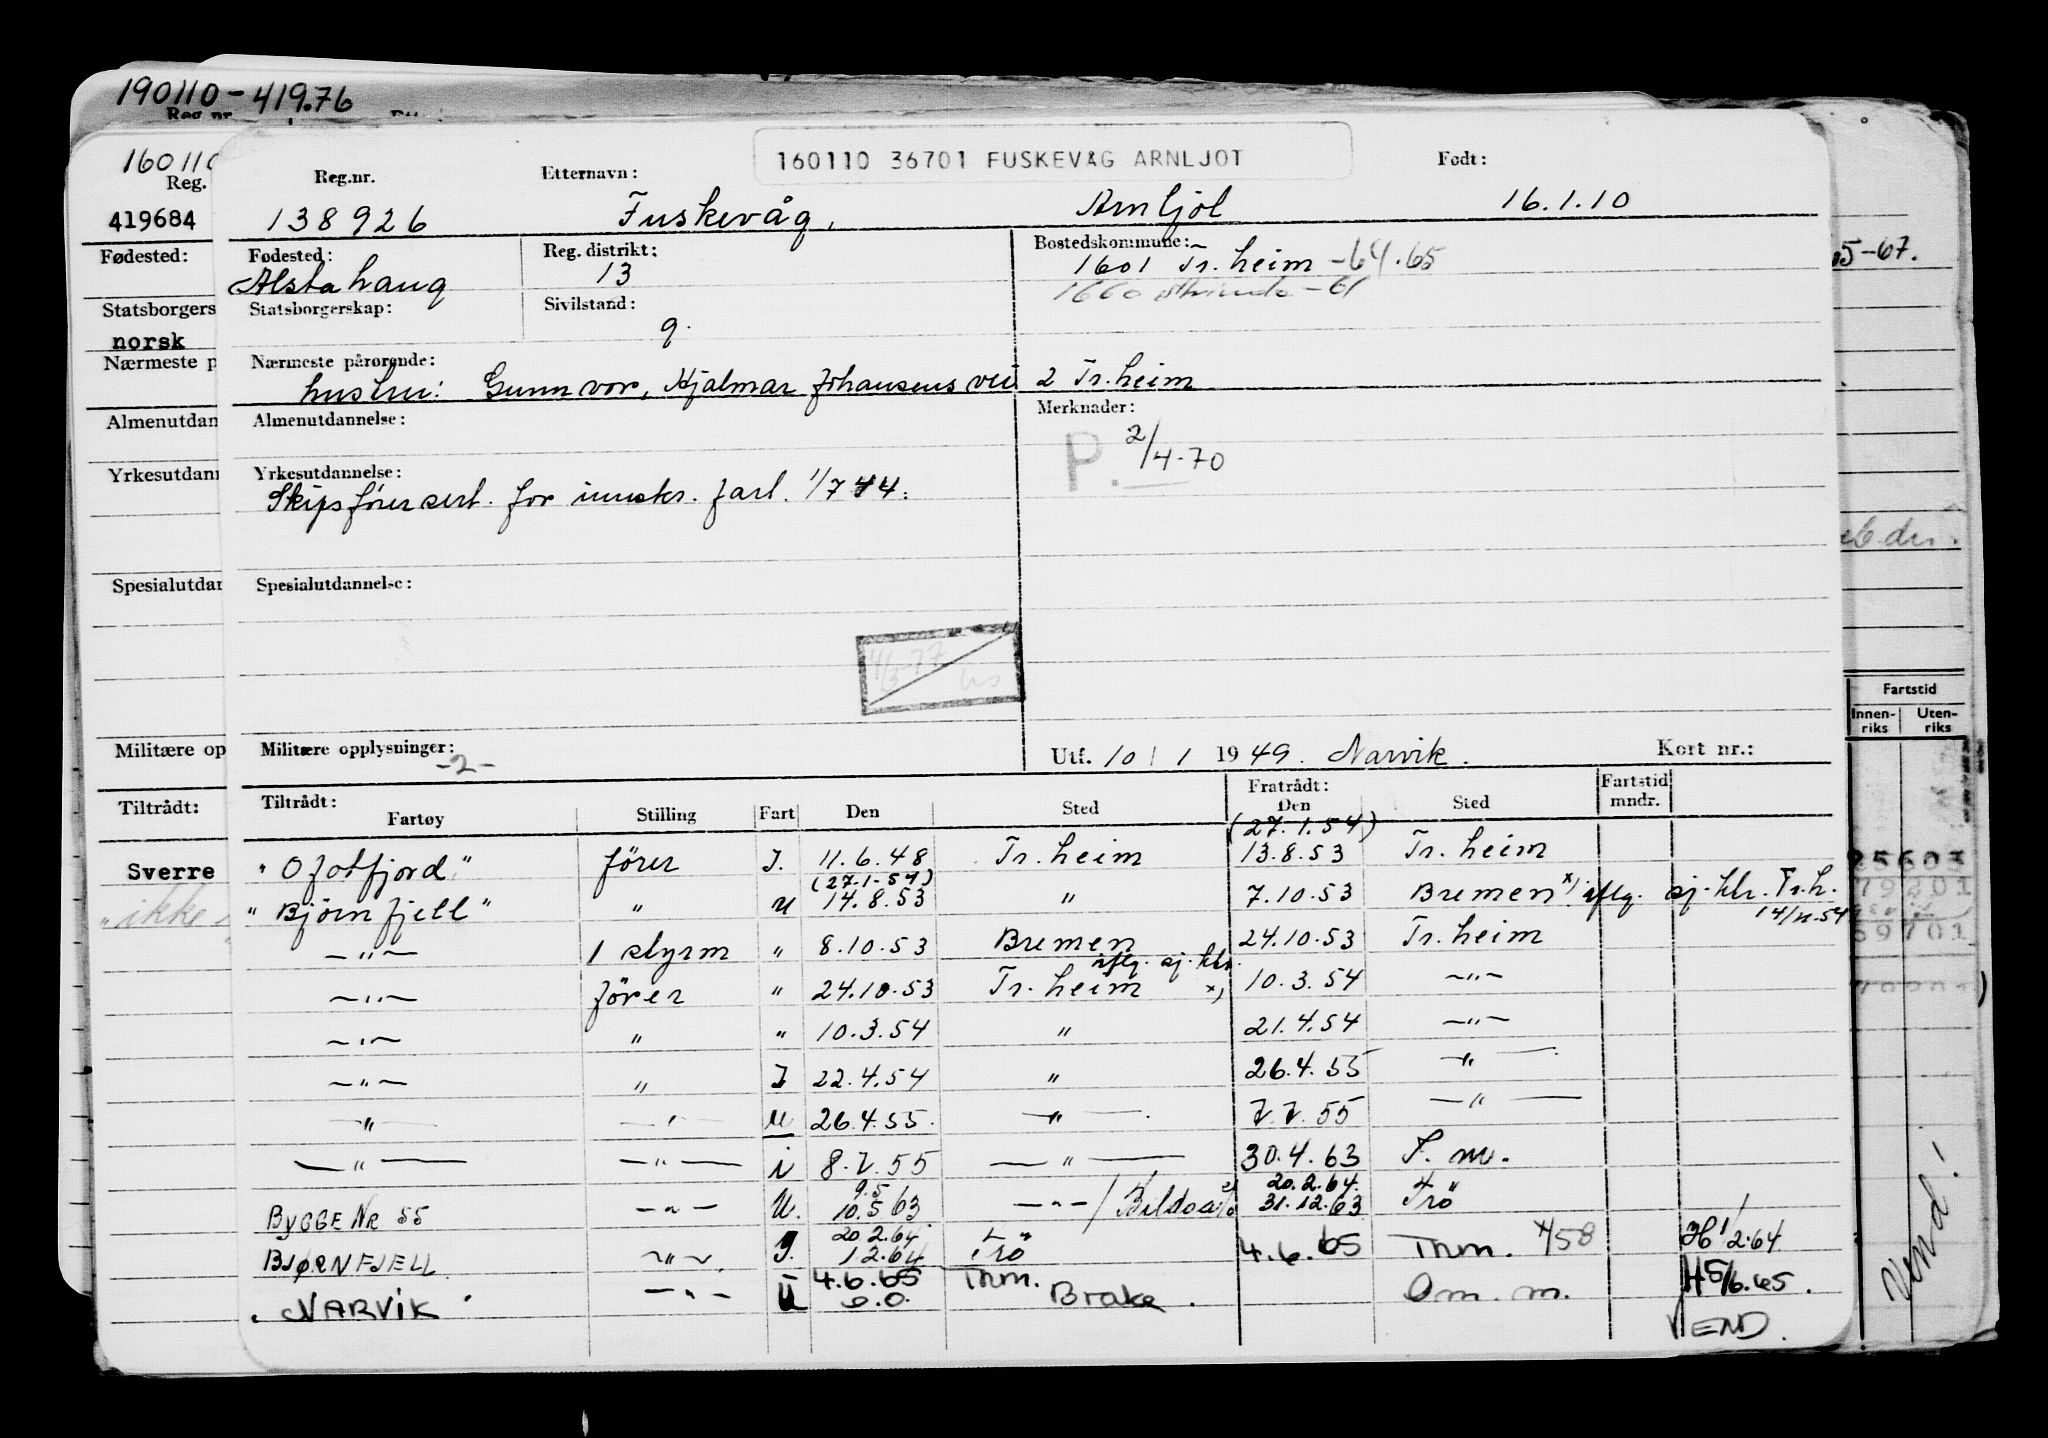 190110-419.76
Reg.nr.
160110
Reg.
419684
Fødested:
Statsborgers
norsk
Nærmeste p
Almenutdan
Yrkesutdann
Spesialutdan
Militære op
Tiltrådt:
Sverre
"ikke
160110 36701 FUSKEVÅG ARNLJOT
Reg.nr. Etternavn: Født:
138926 Fuskevåg, Arnljot 16.1.10
Fødested: Reg. distrikt: Bostedskommune:
Alstahaug 13 1601 Tr.heim -64.65
1660 Strinda -61
Statsborgerskap: Sivilstand:
g.
Nærmeste pårørende:
hustru: Gunnvor, Hjalmar Johansens vei 2 Tr.heim
Almenutdannelse: Merknader:
P. 2/4-70
Yrkesutdannelse:
Skipsførersert. for innskr. fart. 1/7 44.
Spesialutdannelse:
Militære opplysninger: -2- Utf. 10/1 1949. Narvik. Kort nr.:
Tiltrådt: Fratrådt: Fartstid
Fartøy Stilling Fart Den Sted Den Sted mndr.
(27.1.54)
"Ofotfjord" fører I. 11.6.48 Tr.heim 13.8.53 Tr.heim
(27.1-54)
"Bjørnfjell" " U 14.8.53 " 7.10.53 Bremen x) iflg. sj.ktr. Tr.h.
14/11.54
—"— 1 styrm " 8.10.53 Bremen 24.10.53 Tr.heim
iflg. sj. ktr.
—"— fører " 24.10.53 Tr.heim x) 10.3.54 —"—
—"— " " 10.3.54 " 21.4.54 —"—
—"— " I 22.4.54 " 26.4.55 —"—
—"— —"— U 26.4.55. —"— 7.7.55 —"—
—"— —"— i 8.7.55 —"— 30.4.63 F.m.
9.5 20.2.64.
BYGGE NR 55 —"— U. 10.5.63 —"— / Bildsø 31.12.63 Trö
20.2.64
BJØRNFJELL —"— I. 1.2.64 Trö 4.6.65 Thm. x/58 H 1/2.64
4.6.65 Thm.
"NARVIK —"— U o.o. Brake. Om.m. H 5/6.65.
VEND.
5-67.
Fartstid
Innen-riks Uten-riks
Vend!